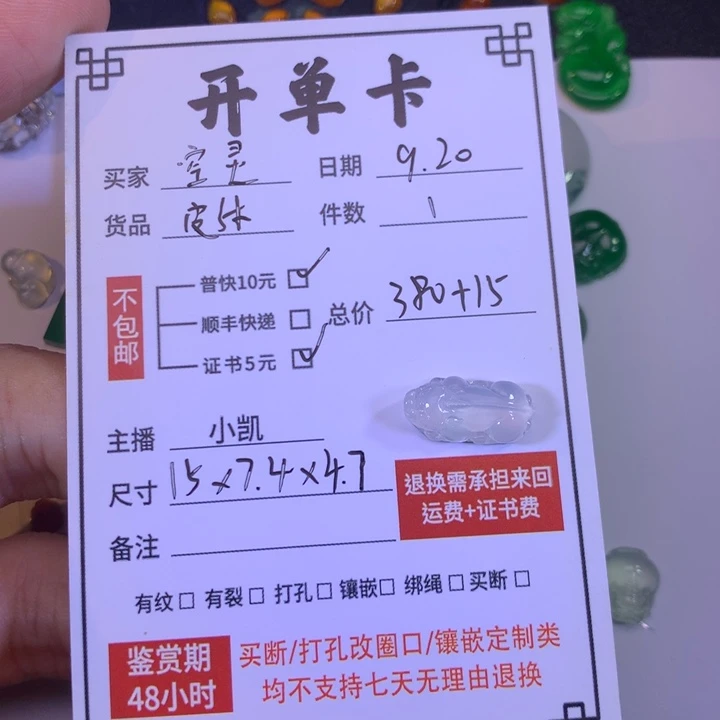 开单卡
买家 空灵 日期 9.20
货品 皮休 件数 1
不包邮
普快10元 ☑
顺丰快递 □
证书5元 ☑
总价 380+15
主播 小凯
尺寸 15×7.4×4.7
退换需承担来回
运费+证书费
备注
有纹□ 有裂□ 打孔□ 镶嵌□ 绑绳□ 买断□
鉴赏期
48小时
买断/打孔改圈口/镶嵌定制类
均不支持七天无理由退换